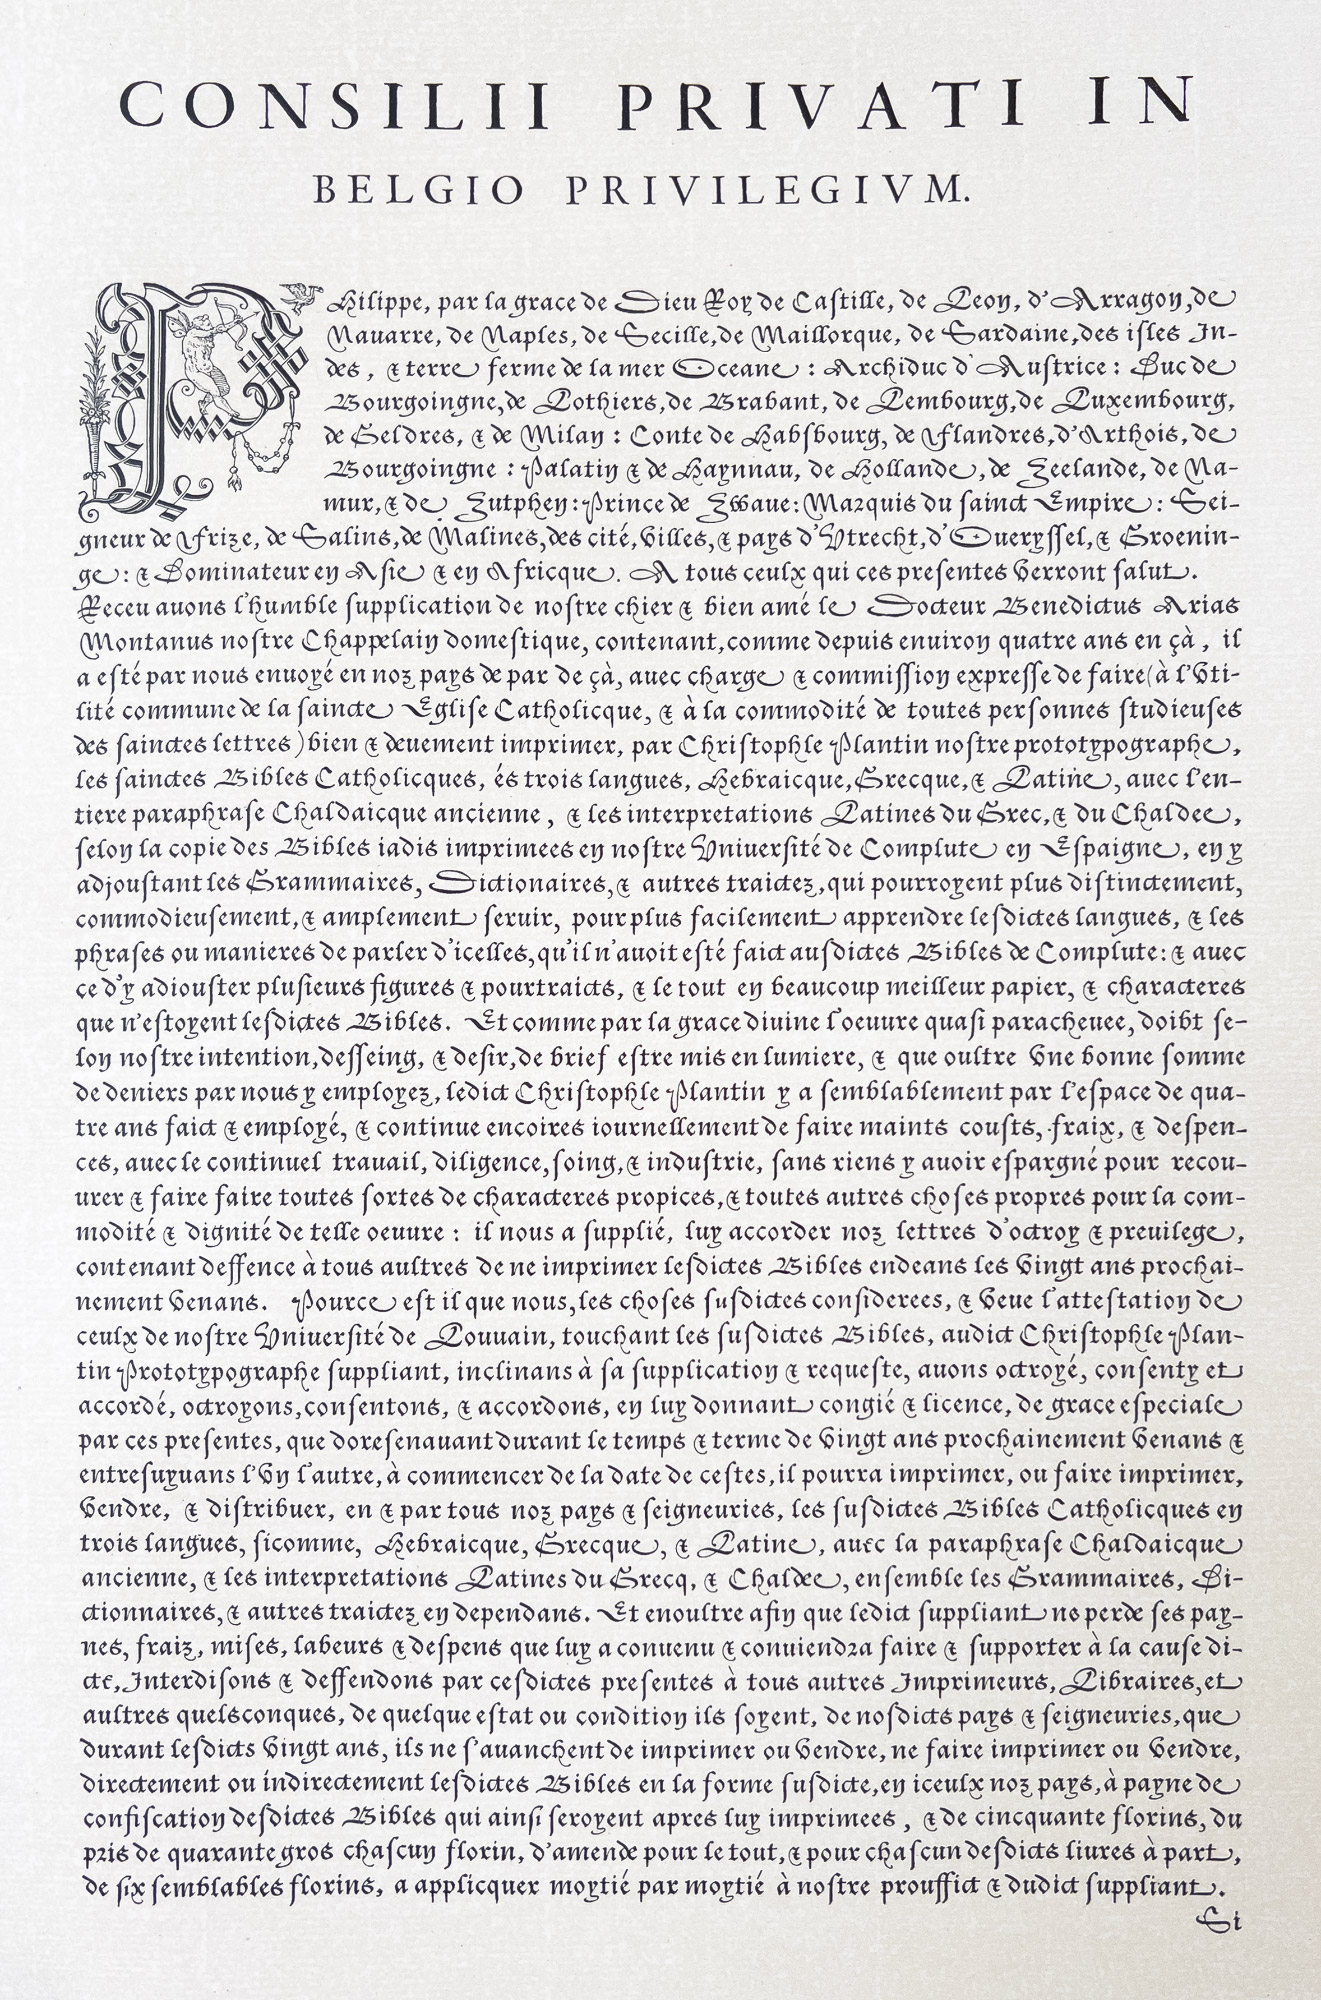 CONSILII PRIVATI IN
BELGIO PRIVILEGIVM.
PHilippe, par la grace de Dieu Roy de Castille, de Leon, d'Arragon, de
Nauarre, de Naples, de Secille, de Maillorque, de Sardaine, des isles In-
des, & terre ferme de la mer Oceane : Archiduc d'Austrice : Duc de
Bourgoingne, de Lothiers, de Brabant, de Lembourg, de Luxembourg,
de Geldres, & de Milan : Conte de Habsbourg, de Flandres, d'Arthois, de
Bourgoingne : Palatin & de Haynnau, de Hollande, de Zeelande, de Na-
mur, & de Zutphen : Prince de Zwaue : Marquis du sainct Empire : Sei-
gneur de Frize, de Salins, de Malines, des cité, villes, & pays d'Vtrecht, d'Oueryssel, & Groenin-
ge : & Dominateur en Asie & en Africque. A tous ceulx qui ces presentes verront salut.
Receu auons l'humble supplication de nostre chier & bien amé le Docteur Benedictus Arias
Montanus nostre Chappelain domestique, contenant, comme depuis enuiron quatre ans en çà, il
a esté par nous enuoyé en noz pays de par de çà, auec charge & commission expresse de faire (à l'vti-
lité commune de la saincte Eglise Catholicque, & à la commodité de toutes personnes studieuses
des sainctes lettres) bien & deuement imprimer, par Christophle Plantin nostre prototypographe,
les sainctes Bibles Catholicques, és trois langues, Hebraicque, Grecque, & Latine, auec l'en-
tiere paraphrase Chaldaicque ancienne, & les interpretations Latines du Grec, & du Chaldee,
selon la copie des Bibles iadis imprimees en nostre Vniuersité de Complute en Espaigne, en y
adjoustant les Grammaires, Dictionaires, & autres traictez, qui pourroyent plus distinctement,
commodieusement, & amplement seruir, pour plus facilement apprendre lesdictes langues, & les
phrases ou manieres de parler d'icelles, qu'il n'auoit esté faict ausdictes Bibles de Complute : & auec
ce d'y adiouster plusieurs figures & pourtraicts, & le tout en beaucoup meilleur papier, & characteres
que n'estoyent lesdictes Bibles. Et comme par la grace diuine l'oeuure quasi paracheuee, doibt se-
lon nostre intention, desseing, & desir, de brief estre mis en lumiere, & que oultre vne bonne somme
de deniers par nous y employez, ledict Christophle Plantin y a semblablement par l'espace de qua-
tre ans faict & employé, & continue encoires iournellement de faire maints cousts, fraix, & despen-
ces, auec le continuel trauail, diligence, soing, & industrie, sans riens y auoir espargné pour recou-
urer & faire faire toutes sortes de characteres propices, & toutes autres choses propres pour la com-
modité & dignité de telle oeuure : il nous a supplié, luy accorder noz lettres d'octroy & preuilege,
contenant deffence à tous aultres de ne imprimer lesdictes Bibles endeans les vingt ans prochai-
nement venans. Pource est il que nous, les choses susdictes considerees, & veue l'attestation de
ceulx de nostre Vniuersité de Louuain, touchant les susdictes Bibles, audict Christophle Plan-
tin Prototypographe suppliant, inclinans à sa supplication & requeste, auons octroyé, consenty et
accordé, octroyons, consentons, & accordons, en luy donnant congié & licence, de grace especiale
par ces presentes, que doresenauant durant le temps & terme de vingt ans prochainement venans &
entresuyuans l'vn l'autre, à commencer de la date de cestes, il pourra imprimer, ou faire imprimer,
vendre, & distribuer, en & par tous noz pays & seigneuries, les susdictes Bibles Catholicques en
trois langues, sicomme, Hebraicque, Grecque, & Latine, auec la paraphrase Chaldaicque
ancienne, & les interpretations Latines du Grecq, & Chaldee, ensemble les Grammaires, Di-
ctionnaires, & autres traictez en dependans. Et enoultre afin que ledict suppliant ne perde ses pay-
nes, fraiz, mises, labeurs & despens que luy a conuenu & conuiendra faire & supporter à la cause di-
cte, Interdisons & deffendons par cesdictes presentes à tous autres Imprimeurs, Libraires, et
aultres quelsconques, de quelque estat ou condition ils soyent, de nosdicts pays & seigneuries, que
durant lesdicts vingt ans, ils ne s'auanchent de imprimer ou vendre, ne faire imprimer ou vendre,
directement ou indirectement lesdictes Bibles en la forme susdicte, en iceulx noz pays, à payne de
confiscation desdictes Bibles qui ainsi seroyent apres luy imprimees, & de cincquante florins, du
pris de quarante gros chascun florin, d'amende pour le tout, & pour chascun desdicts liures à part,
de six semblables florins, a applicquer moytié par moytié à nostre prouffict & dudict suppliant.
Si